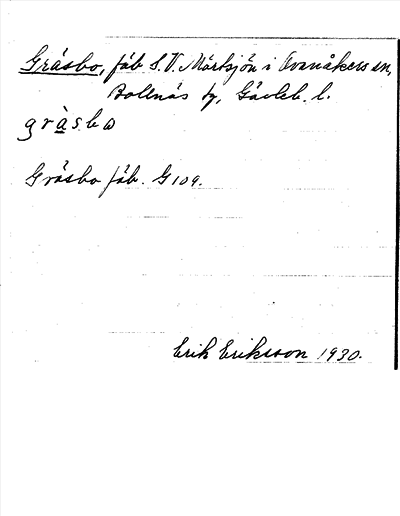 Gräsbo, fäb S.V. Mårtsjön i Ovanåkers sn,
Bollnäs tg, Gävleb. l.
gràsbω
Gräsbo fäb. G109.
Erik Eriksson 1930.